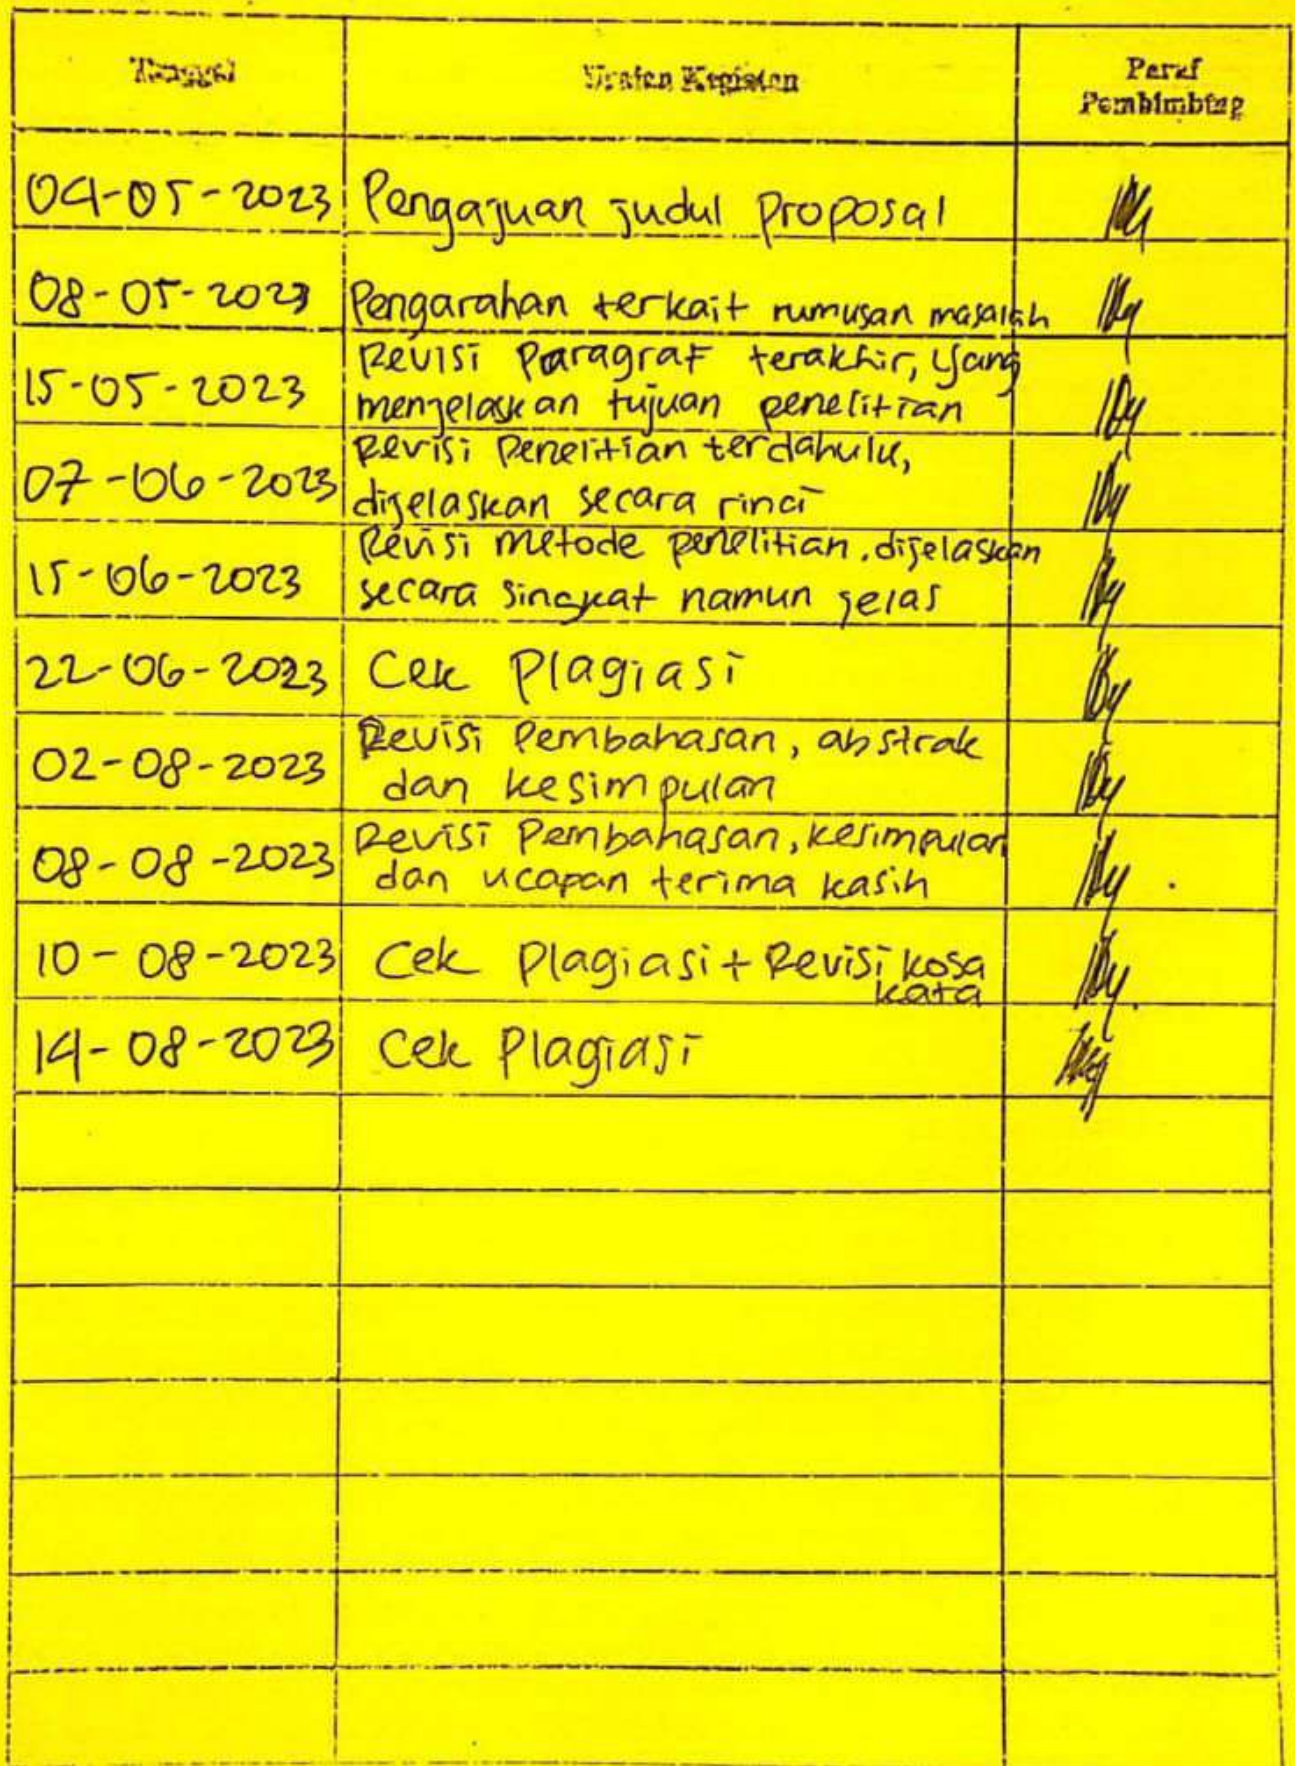 Tanggal
Uraian Kegiatan
Paraf
Pembimbing
04-05-2023 Pengajuan judul proposal
08-05-2023 Pengarahan terkait rumusan masalah
15-05-2023 Revisi Paragraf terakhir, yang
menjelaskan tujuan penelitian
07-06-2023 Revisi Penelitian terdahulu,
dijelaskan secara rinci
15-06-2023 Revisi metode penelitian, dijelaskan
secara singkat namun jelas
22-06-2023 Cek Plagiasi
02-08-2023 Revisi Pembahasan, abstrak
dan kesimpulan
08-08-2023 Revisi Pembahasan, kesimpulan
dan ucapan terima kasih
10-08-2023 Cek Plagiasi + Revisi kosa
kata
14-08-2023 Cek Plagiasi